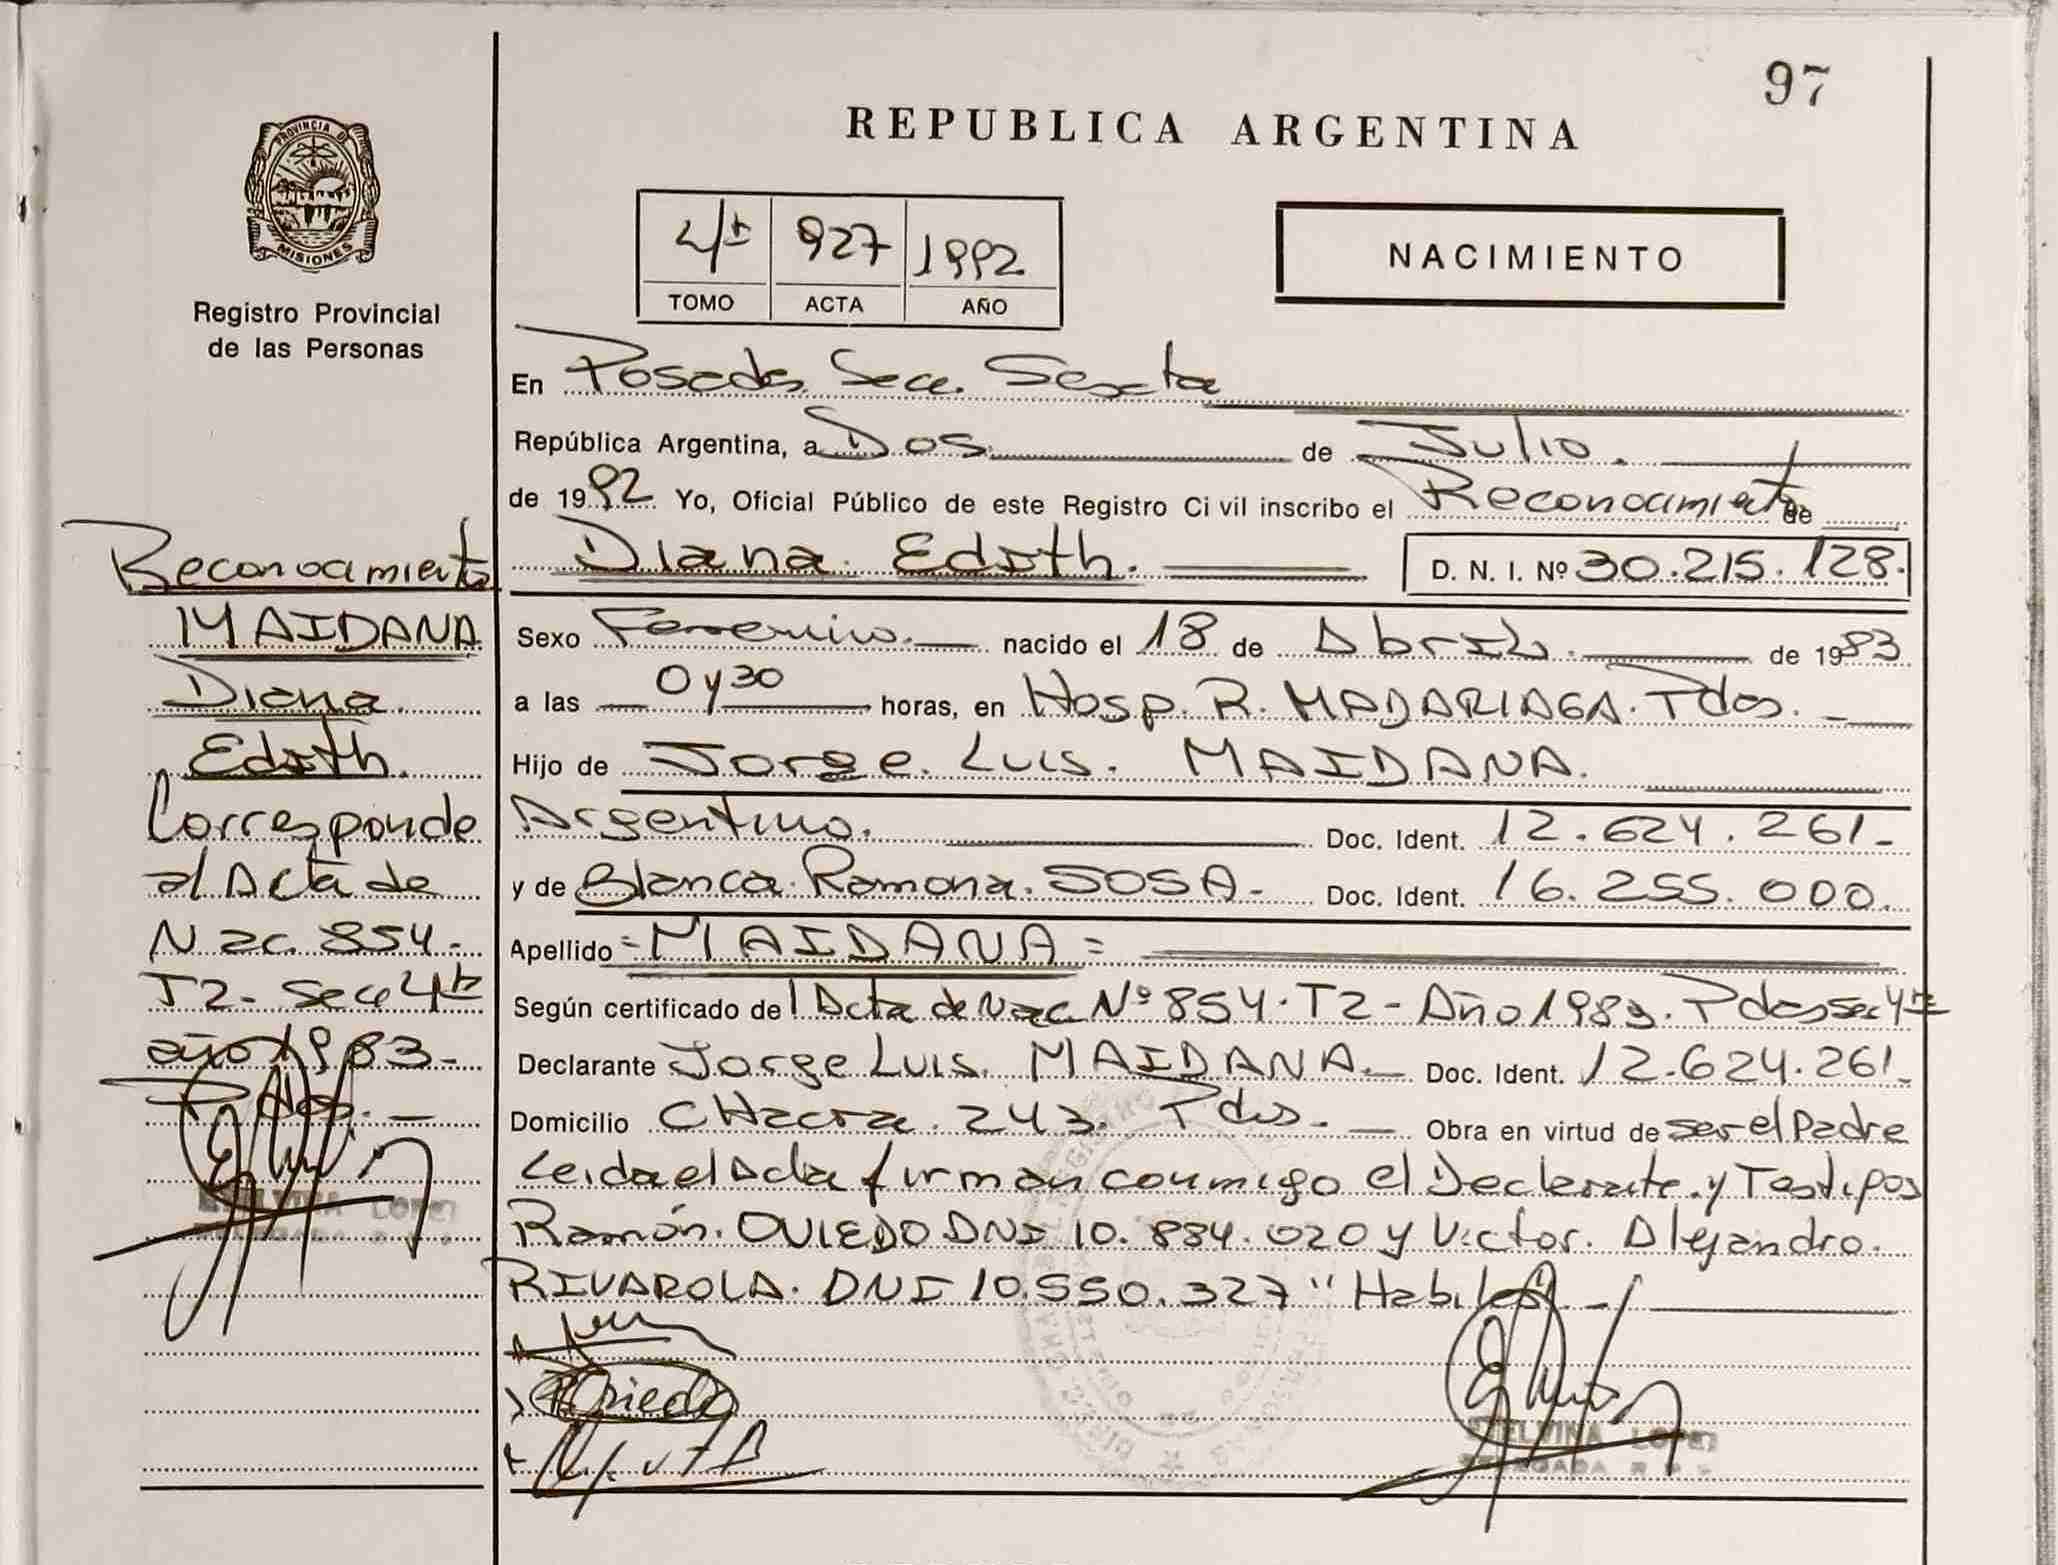 97
REPUBLICA ARGENTINA
PROVINCIA DE
MISIONES
Registro Provincial
de las Personas
4ta 927 1992
TOMO ACTA AÑO
NACIMIENTO
En Posadas. Secc. Sexta
República Argentina, a Dos de Julio.
de 1992 Yo, Oficial Público de este Registro Civil inscribo el Reconocimiento de
Diana Edith. D. N. I. Nº 30.215.128.
Sexo Femenino. nacido el 18 de Abril. de 1983
a las 0 y 30 horas, en Hosp. R. MADARIAGA. Pdas.
Hijo de Jorge Luis. MAIDANA.
Argentino. Doc. Ident. 12.624.261-
y de Blanca Ramona. SOSA- Doc. Ident. 16.255.000.
Apellido =MAIDANA=
Según certificado de Acta de Nac Nº 854. T2- Año 1983. Pdas sec 4ta
Declarante Jorge Luis. MAIDANA. Doc. Ident. 12.624.261-
Domicilio CHacra. 243. Pdas. Obra en virtud de ser el Padre
Leida el Acta firman conmigo el Declarante. y Testigos
Ramón. OVIEDO DNI 10.884.020 y Victor. Alejandro.
RIVAROLA. DNI 10.550.327 "Habiles"
Reconocimiento
MAIDANA
Diana
Edith.
Corresponde
al Acta de
Nac. 854-
T2- Secc 4ta
año 1983-
Pdas.
ELVINA LOPEZ
DELEGADA
Oviedo
ELVINA LOPEZ
DELEGADA R P